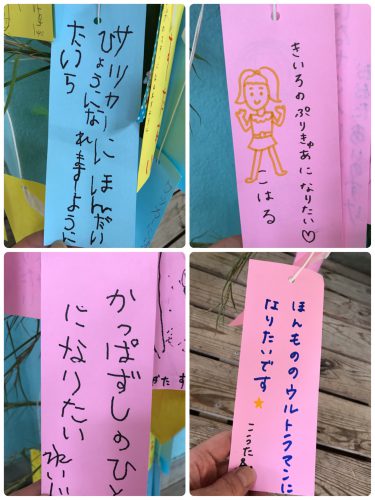 サツカーにほんだい
ひょうになれますように
たいち
きいろのぷりきゅあになりたい♡
こはる
かっぱずしのひと
になりたい
ほんもののウルトラマンに
なりたいです★
こうた